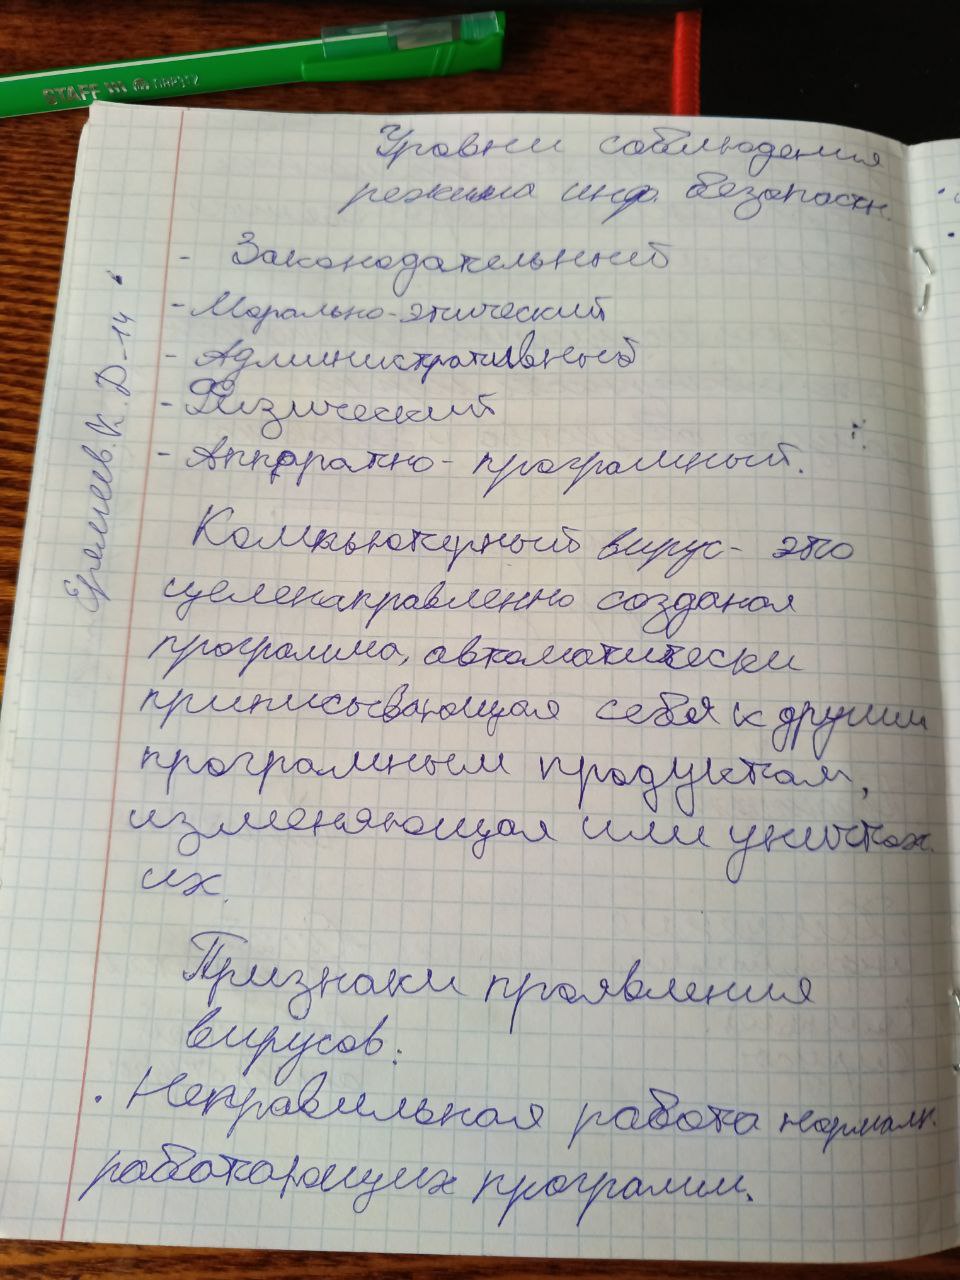 STAFF
Уровни соблюдения
режима инф. безопасн.
- Законодательный
- Морально-этический
- Административный
- Физический
- Аппаратно-програмный.
Еремеев. К. Д-14
Компьютерный вирус- это
целенаправленно созданая
программа, автоматически
приписывающая себя к другим
програмным продуктам,
изменяющая или уничтож.
их.
Признаки проявления
вирусов:
. Неправильная работа нормалн.
работающих программ.